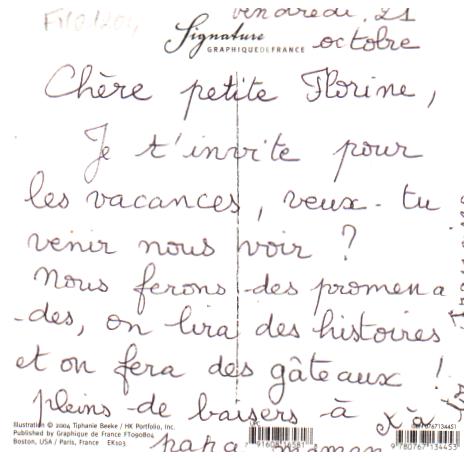 vendredi 21
Signature
GRAPHIQUE DE FRANCE
octobre
Chère petite Florine,
Je t'invite pour
les vacances, veux-tu
venir nous voir ?
Nous ferons des promena
-des, on lira des histoires
et on fera des gâteaux !
pleins de baisers à
papa maman
Illustration © 2004 Tiphanie Beeke / HK Portfolio, Inc.
Published by Graphique de France FT090804
Boston, USA / Paris, France EK103
9 780767 134453